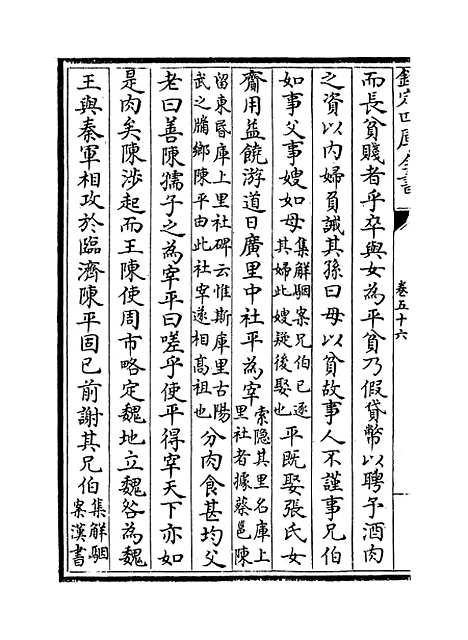 欽定四庫全書
卷五十六
而長貧賤者乎卒與女為平貧乃假貸幣以聘予酒肉
之資以内婦負誡其孫曰毋以貧故事人不謹事兄伯
如事父事嫂如母集解駰案兄伯已逐其婦此嫂疑後娶也平既娶張氏女
齎用益饒游道日廣里中社平為宰索隱其里名庫上里社者據蔡邕陳
留東昬庫上里社碑云惟斯庫里古陽武之牖鄉陳平由此社宰遂相高祖也分肉食甚均父
老曰善陳孺子之為宰平曰嗟乎使平得宰天下亦如
是肉矣陳涉起而王陳使周市略定魏地立魏咎為魏
王與秦軍相攻於臨濟陳平固已前謝其兄伯集解駰案漢書